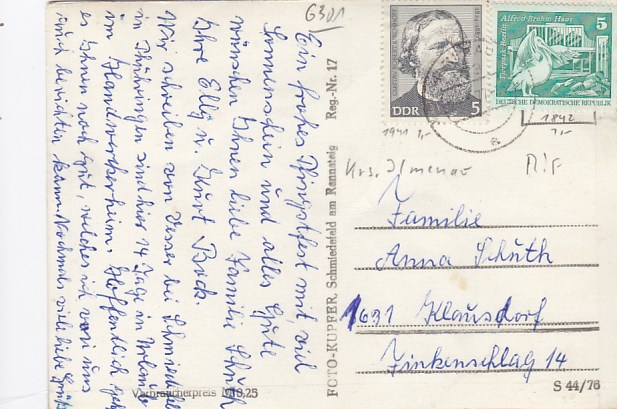 6301
Ein frohes Pfingstfest mit viel
Sonnenschein und alles Gute
wünschen Ihnen liebe Familie Schuth
Ihre Elly u. Kurt Bock.
Wir schreiben von Vesser bei Schmiedefeld
in Thüringen sind hier 14 Tage in Urlaub
im Handwerkerheim. Hoffentlich geht
es Ihnen noch gut, welches ich von uns
auch berichten kann. Nochmals viele liebe Grüße
Verbraucherpreis M 0,25
FOTO-KUPFER, Schmiedefeld am Rennsteig Reg.-Nr. 17
DDR 5
Alfred-Brehm-Haus 5
Tierpark Berlin
DEUTSCHE DEMOKRATISCHE REPUBLIK
1941
1842
Krs. Ilmenau
MiF
Familie
Anna Schuth
1631 Klausdorf
Zinkenschlag 14
S 44/76